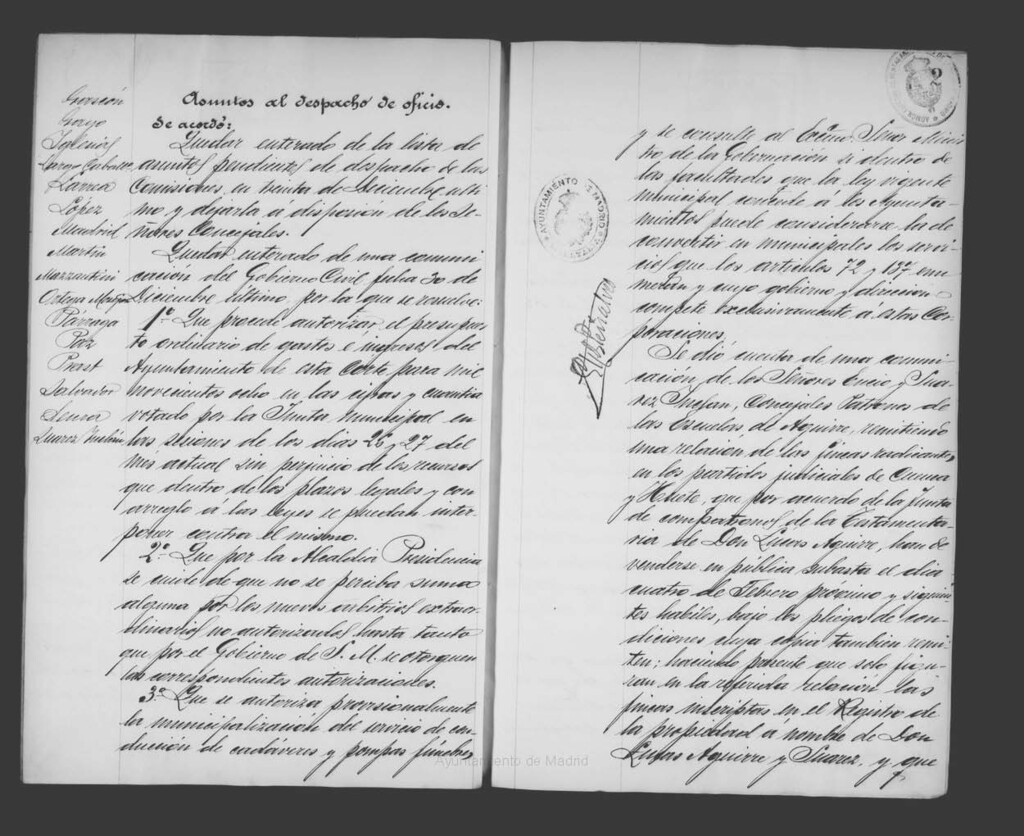 Gascón
Goyo
Iglesias
Largo Caballº
Larrea
López
Madrid
Martin
Mazzantini
Ortega Morejon
Párraga
Paz
Prast
Salvador
Senra
Suarez Inclán
Asuntos al despacho de oficio.
Se acordó:
Quedar enterado de la lista de
asuntos pendientes de despacho de las
Comisiones en treinta de Diciembre últi-
mo y dejarla á disposión de los Se-
ñores Concejales.
Quedar enterado de una comuni-
cación del Gobierno Civil fecha 30 de
Diciembre último, por la que se resuelve:
1º Que procede autorizar el presupues-
to ordinario de gastos e ingresos del
Ayuntamiento de esta Corte para mil
novecientos ocho en las cifras y cuantia
votado por la Junta Municipal en
las sesiones de los dias 26 y 27 del
mes actual sin perjuicio de los recursos
que dentro de los plazos legales y con
arreglo a las leyes se puedan inter-
poner contra el mismo.
2º Que por la Alcaldia Presidencia
se cuide de que no se perciba suma
alguna por los nuevos arbitrios extraor-
dinarios no autorizados hasta tanto
que por el Gobierno de S. M. se otorguen
las correspondientes autorizaciones.
3º Que se autoriza provisionalmente
la municipalización del servicio de con-
ducción de cadáveres y pompas fúnebres
AYUNTAMIENTO
2
y se consulte al Excmo. Señor Minis-
tro de la Gobernación si dentro de
las facultades que la ley vigente
municipal concede á los Ayunta-
mientos puede considerarse la de
convertir en municipales los servi-
cios que los articulos 72 y 137 enu-
meran y cuyo gobierno y dirección
compete exclusivamente a estas Cor-
poraciones.
Se dió cuenta de una comuni-
cación de los Señores Encio y Sua-
rez Inclan, Concejales Patronos de
las Escuelas de Aguirre, remitiendo
una relación de las fincas radicantes
en los partidos judiciales de Cuenca
y Huete, que por acuerdo de la Junta
de compatronos de la Testamenta-
ria de Don Lucas Aguirre, han de
venderse en pública subasta el dia
cuatro de Febrero próximo y siguien-
tes habiles, bajo los pliegos de con-
diciones cuya copia tambien remi-
ten; haciendo presente que solo figu-
ran en la referida relación las
fincas inscriptas en el Registro de
la propiedad á nombre de Don
Lucas Aguirre y Suarez, y que
Ayuntamiento de Madrid